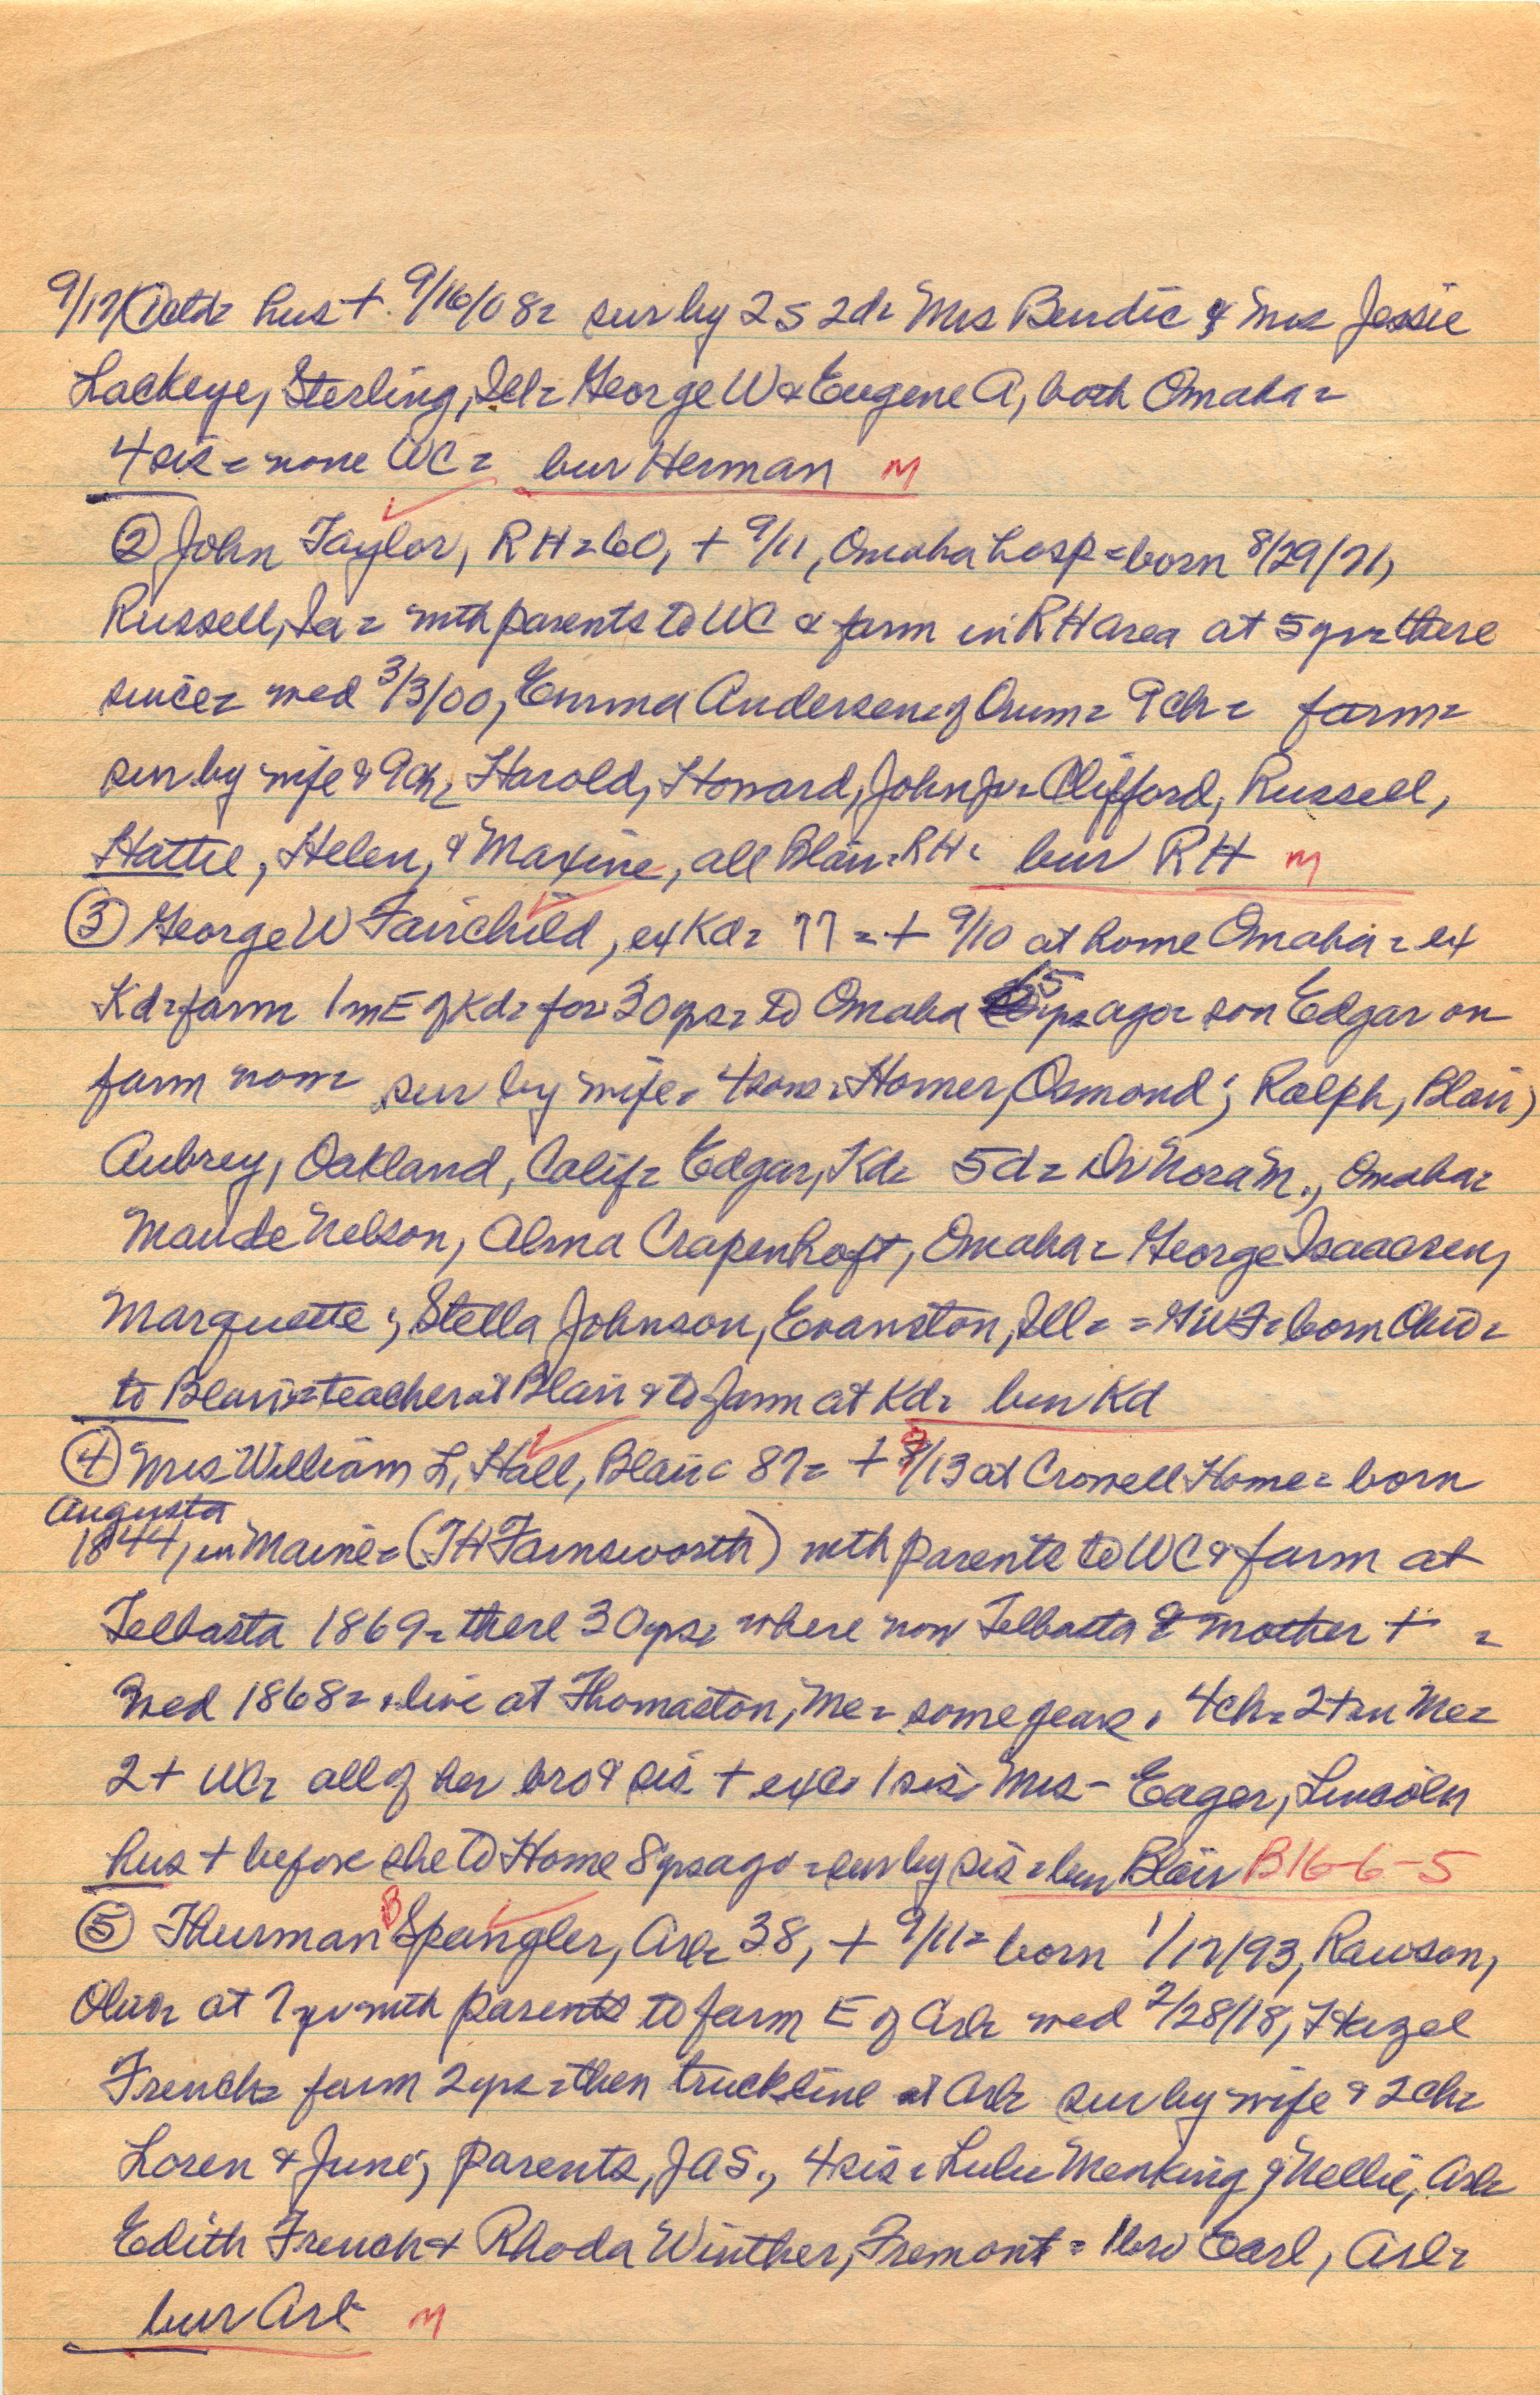 9/17 (1 ctd= hus + 9/16/08= sur by 2s 2d= Mrs Burdic & Mrs Jessie
Lackeye, Sterling, Ill= George W & Eugene A, both Omaha=
4 sis= none WC= bur Herman M
② John Taylor, RH=60, + 9/11, Omaha hosp= born 8/29/71,
Russell, Ia= with parents to WC & farm in RH area at 5 yr= there
since= wed 3/3/00, Emma Andersen of Orum= 9 ch= farm=
sur by wife & 9 ch= Harold, Howard, John Jr= Clifford, Russell,
Hattie, Helen, & Maxine, all Blair= RH= bur RH M
③ George W Fairchild, ex Kd= 77=+ 9/10 at home Omaha= ex
Kd= farm 1 m E of Kd= for 30 yrs= to Omaha 65 yrs ago= son Edgar on
farm now= sur by wife= 4 sons= Homer, Osmond; Ralph, Blair,
Aubrey, Oakland, Calif= Edgar, Kd= 5d= Dr Nora M., Omaha=
Maude Nelson, Alma Crapenhoft, Omaha= George Isaacsen,
Marquette; Stella Johnson, Evanston, Ill= =GWF= born Ohio=
to Blair= teacher at Blair & to farm at Kd= bur Kd
④ Mrs William L, Hall, Blair= 87= + 9/13 at Crowell Home= born
Augusta
1844, in Maine= (TH Farnsworth) with parents to WC & farm at
Telbasta 1869= there 30 yrs= where now Telbasta & mother + =
Wed 1868= & live at Thomaston, Me= some years. 4 ch= 2+ in Me=
2+ WC= all of her bro & sis + exc. 1 sis, Mrs - Eager, Lincoln
hus + before she to Home 8 yrs ago= sur by sis= bur Blair B16-6-5
⑤ Thurman B Spangler, Arl= 38, + 9/11= born 1/17/93, Rawson,
Ohio= at 7 yr with parents to farm E of Arl= wed 2/28/18, Hazel
French= farm 2 yrs= then truck line at Arl= sur by wife & 2 ch=
Loren & June; parents, JAS., 4 sis= Lulu Menking & Nellie, Arl=
Edith French & Rhoda Winther, Fremont= 1 bro Earl, Arl=
bur Arl M